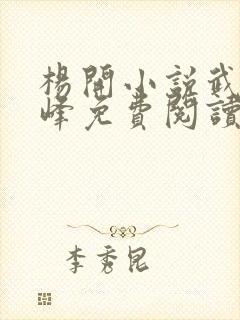 楊開小説武
峰免費閱讀
李秀昆